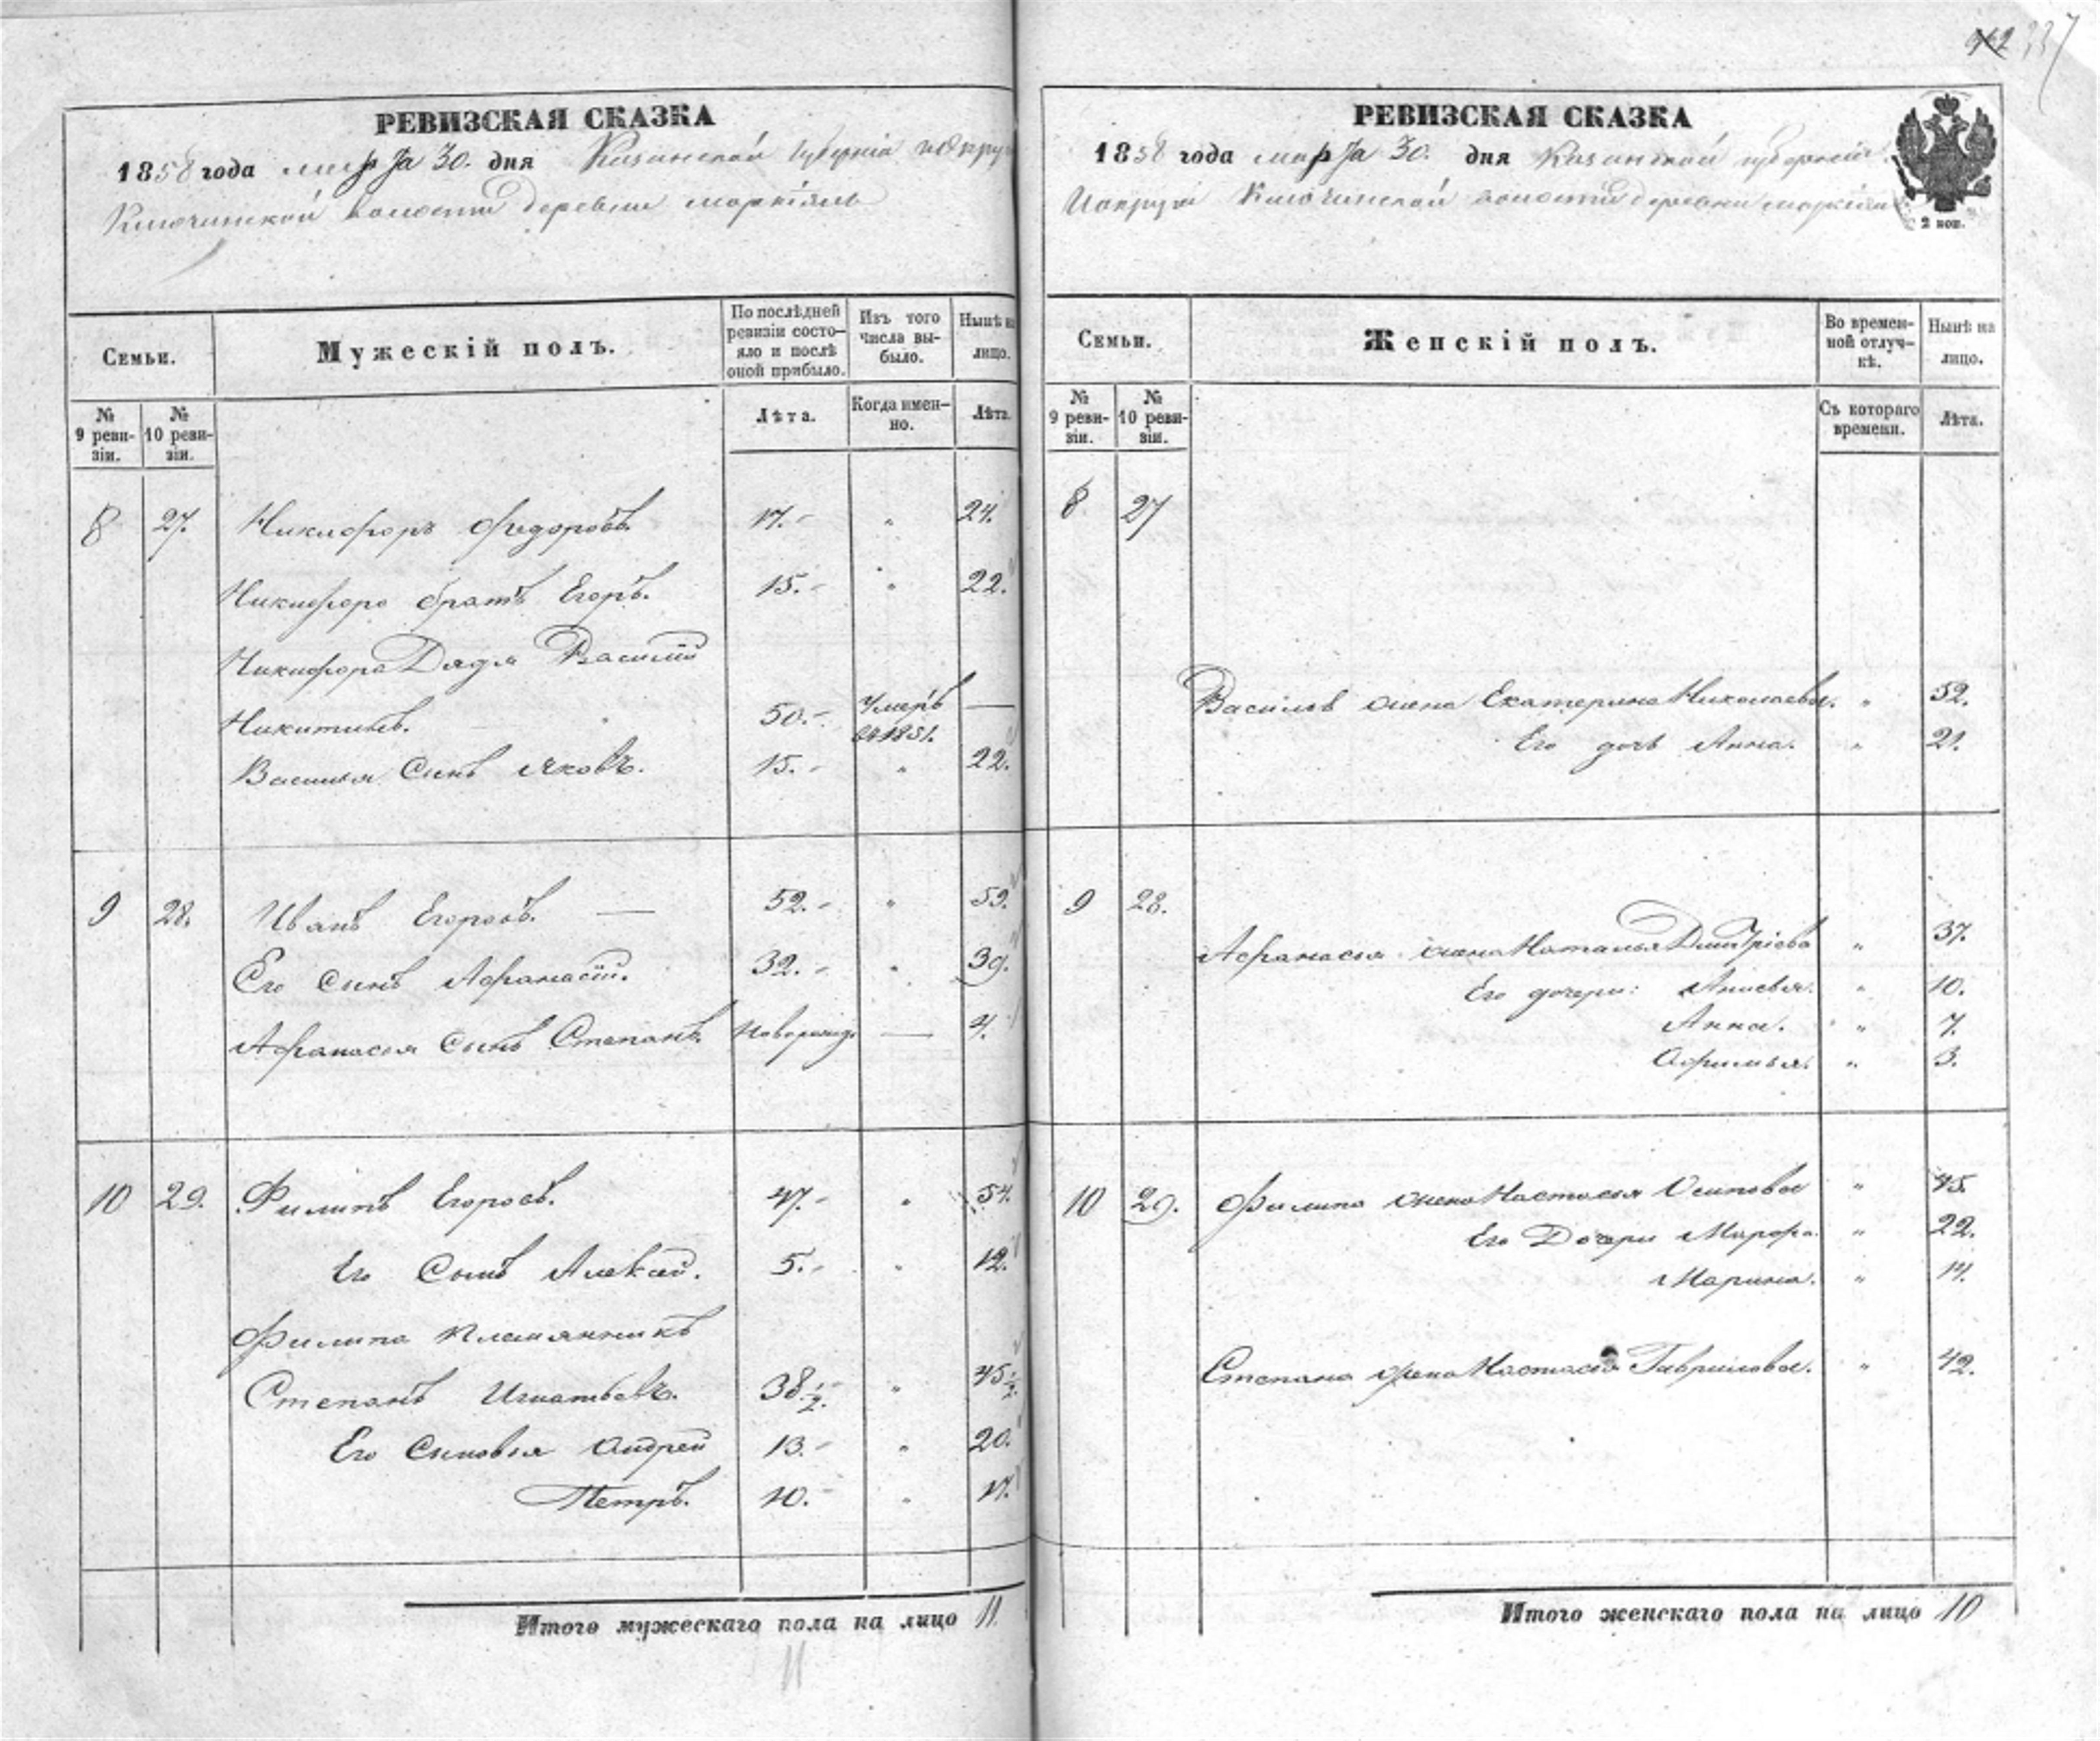 337
РЕВИЗСКАЯ СКАЗКА
1858 года марта 30. дня Казанской губерніи
Ключинской волости деревни
Семьи.
Мужескій полъ.
По послѣдней ревизіи состояло и послѣ оной прибыло.
Изъ того числа выбыло.
Нынѣ на лицо.
№ 9 ревизіи.
№ 10 ревизіи.
Лѣта.
Когда именно.
Лѣта.
8 27. Никифоръ Федоровъ. 17. " 24.
Никифора братъ Егоръ. 15. " 22.
Никифора Дядя Василій
Никитинъ. 50. Умеръ въ 1851. —
Василья Сынъ Яковъ. 15. " 22.
9 28. Иванъ Егоровъ. — 52. " 59.
Его Сынъ Афанасій. 32. " 39.
Афанасья Сынъ Степанъ. Новорожд. — 4.
10 29. Филипъ Егоровъ. 47. " 54.
Его Сынъ Алексей. 5. " 12.
Филипа племянникъ
Степанъ Игнатьевъ. 38 1/2. " 45 1/2.
Его Сыновья Андрей 13. " 20.
Петръ. 10. " 17.
Итого мужескаго пола на лицо 11.
11
РЕВИЗСКАЯ СКАЗКА
1858 года марта 30. дня Казанской губерніи
Ключинской волости деревни
2 коп.
Семьи.
Женскій полъ.
Во временной отлучкѣ.
Нынѣ на лицо.
№ 9 ревизіи.
№ 10 ревизіи.
Съ котораго времени.
Лѣта.
8 27
Василья жена Екатерина Николаева. " 52.
Его дочь Анна. " 21.
9 28.
Афанасья жена Наталья Дмитріева " 37.
Его дочери: Анисья. " 10.
Анна. " 7.
Афимья. " 3.
10 29. Филипа жена Настасья Осипова " 45.
Его Дочери Марфа. " 22.
Марина. " 17.
Степана жена Настасья Гаврилова. " 42.
Итого женскаго пола на лицо 10